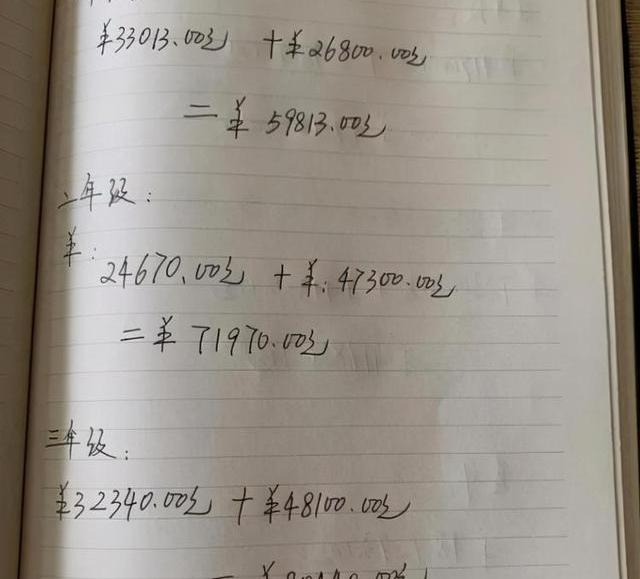 ¥33013.00元 +¥26800.00元
=¥ 59813.00元
二年级:
¥: 24670.00元 +¥: 47300.00元
=¥ 71970.00元
三年级:
¥32340.00元 +¥48100.00元